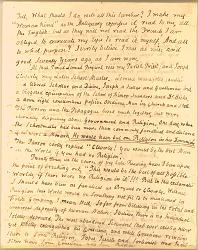 But, What should I do with all this Lumber? I make my
"Woman kind" as the Antiquary expresses it, read to me, all
the English: but as they will not read the French I am
obliged to excruciate my Eyes to read it myself. And all
to what purpose? I verily believe I was as wise and
good, Seventy Years ago, as I am now.
At that Period Lemuel Bryant was my Parish Priest, and Joseph
Cleverly my Latin School Master. Lemuel was a jocular and
liberal Scholar and Divine. Joseph a Scholar and a gentleman; but
a biggoted Episcopalian of the School of Bishop Saunders and Dr Hicks,
a down right conscientious passive Obedience Man in Church and State.
The Parson and the Pedagogue lived much together, but were
eternally disputing about Government and Religion. One day, when
the Schoolmaster had been more than commonly fanatical and declared
if he were a Monark, He would have but one Religion in his Dominions
The Parson cooly replied "Cleverly! You would be the best Man
in the World, if You had no Religion."
Twenty times, in the course of my late Reading, have I been upon
the point of breaking out, "This would be the best of all possible
Worlds, if there were no Religion in it"!!! But in this exclamation
I should have been as fanatical as Bryant or Cleverly. Without
Religion this World would be Something not fit to be mentioned in
polite Company, I mean Hell. So far from believing in the total and
universal depravity of human Nature; I believe there is no Individual
totally depraved.